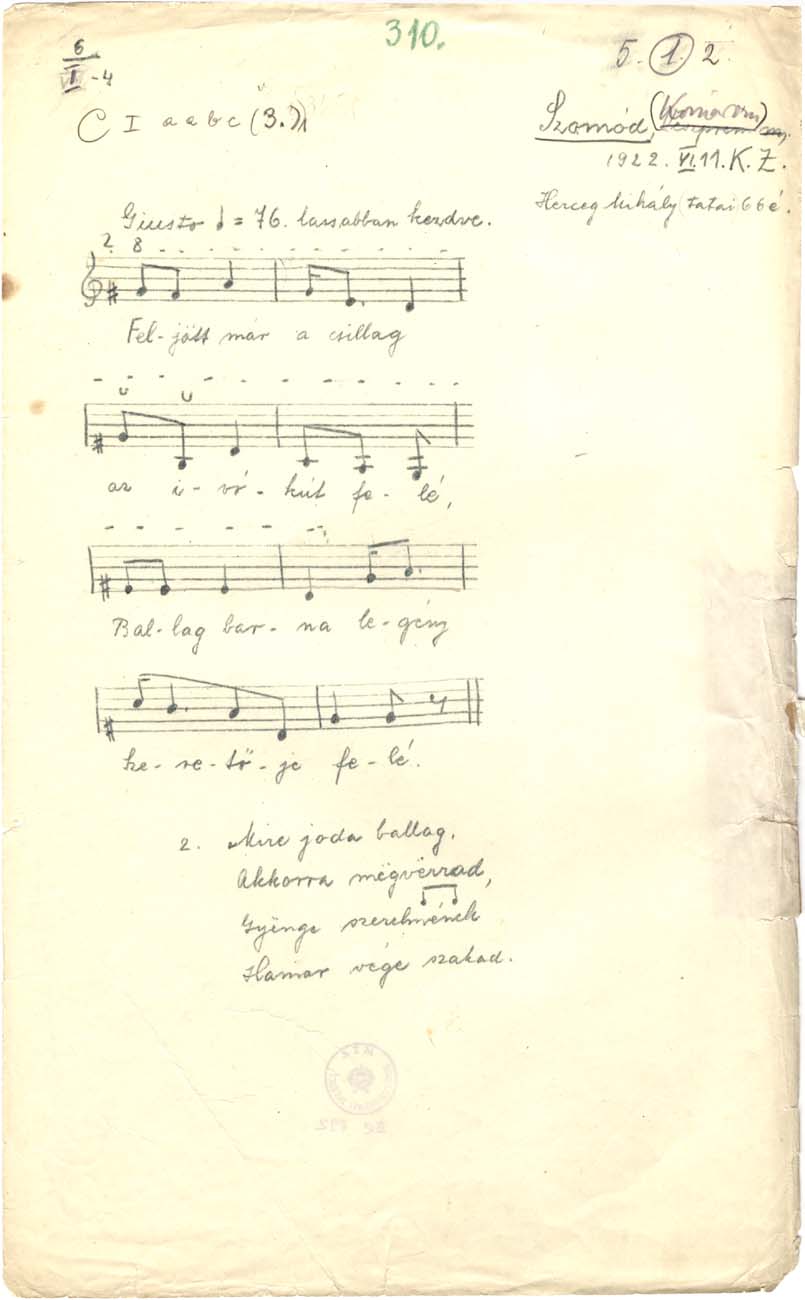 310.
6
I -4
5. 1. 2.
C I a a b c (3.)
Szomód, (Komárom)
1922. VI. 11. K. Z.
Herceg Mihály (tatai) 66 é.
Giusto = 76. lassabban kezdve.
2 8
Fel-jött már a csillag
az i-vó-kút fe-lé,
Bal-lag bar-na le-gény
sze-re-tő-je fe-lé.
2. Mire joda ballag,
Akkorra mëgvérrad,
Gyënge szerelmének
Hamar vége szakad.